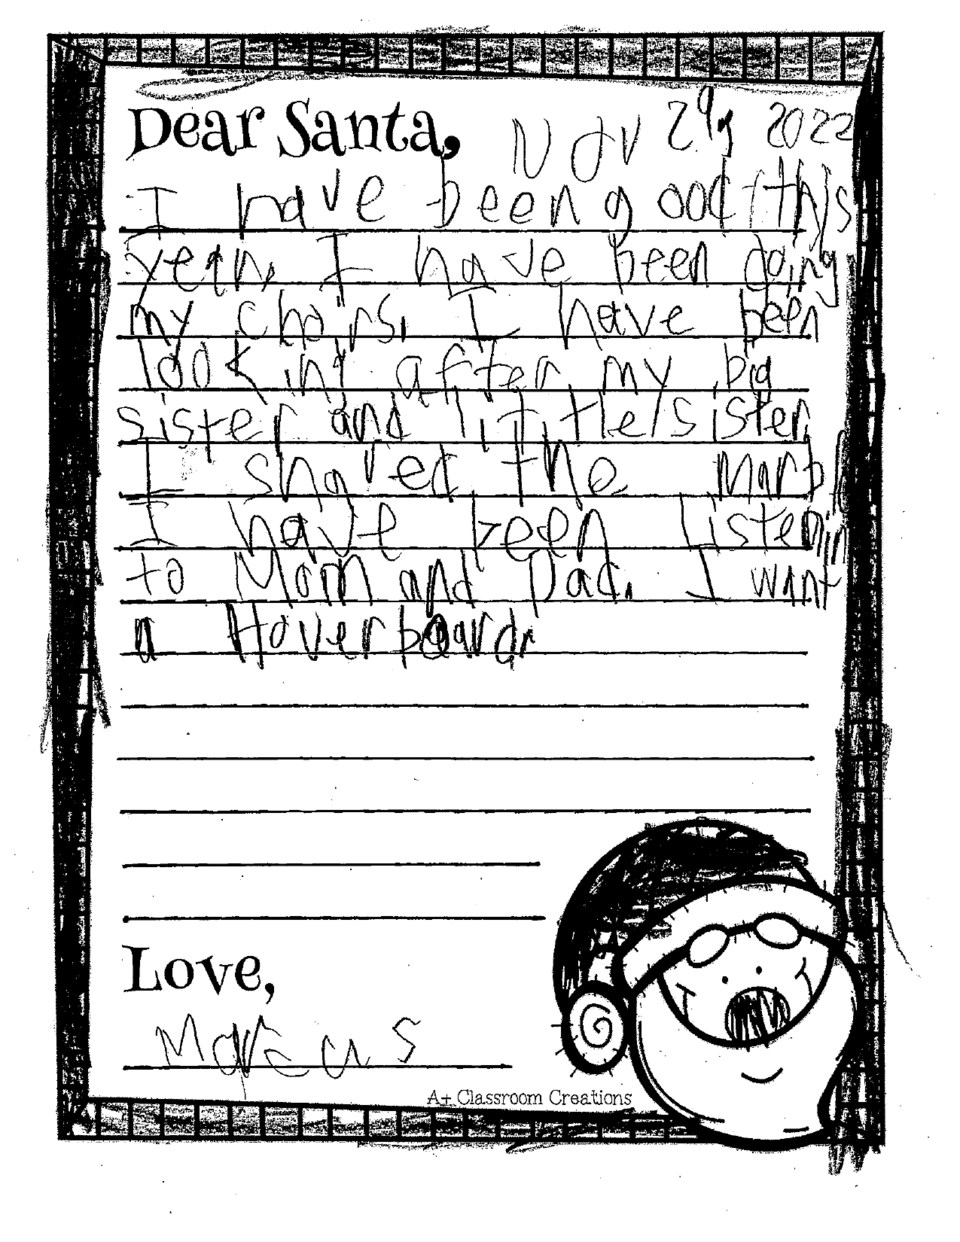 Dear Santa, Nov 29, 2022
I have been good this
year. I have been doing
my choirs. I have been
looking after my big
sister and little sister.
I shared the
I have been listenin
to Mom and Dad. I want
a Hoverboard.
Love,
Marcus
A+ Classroom Creations